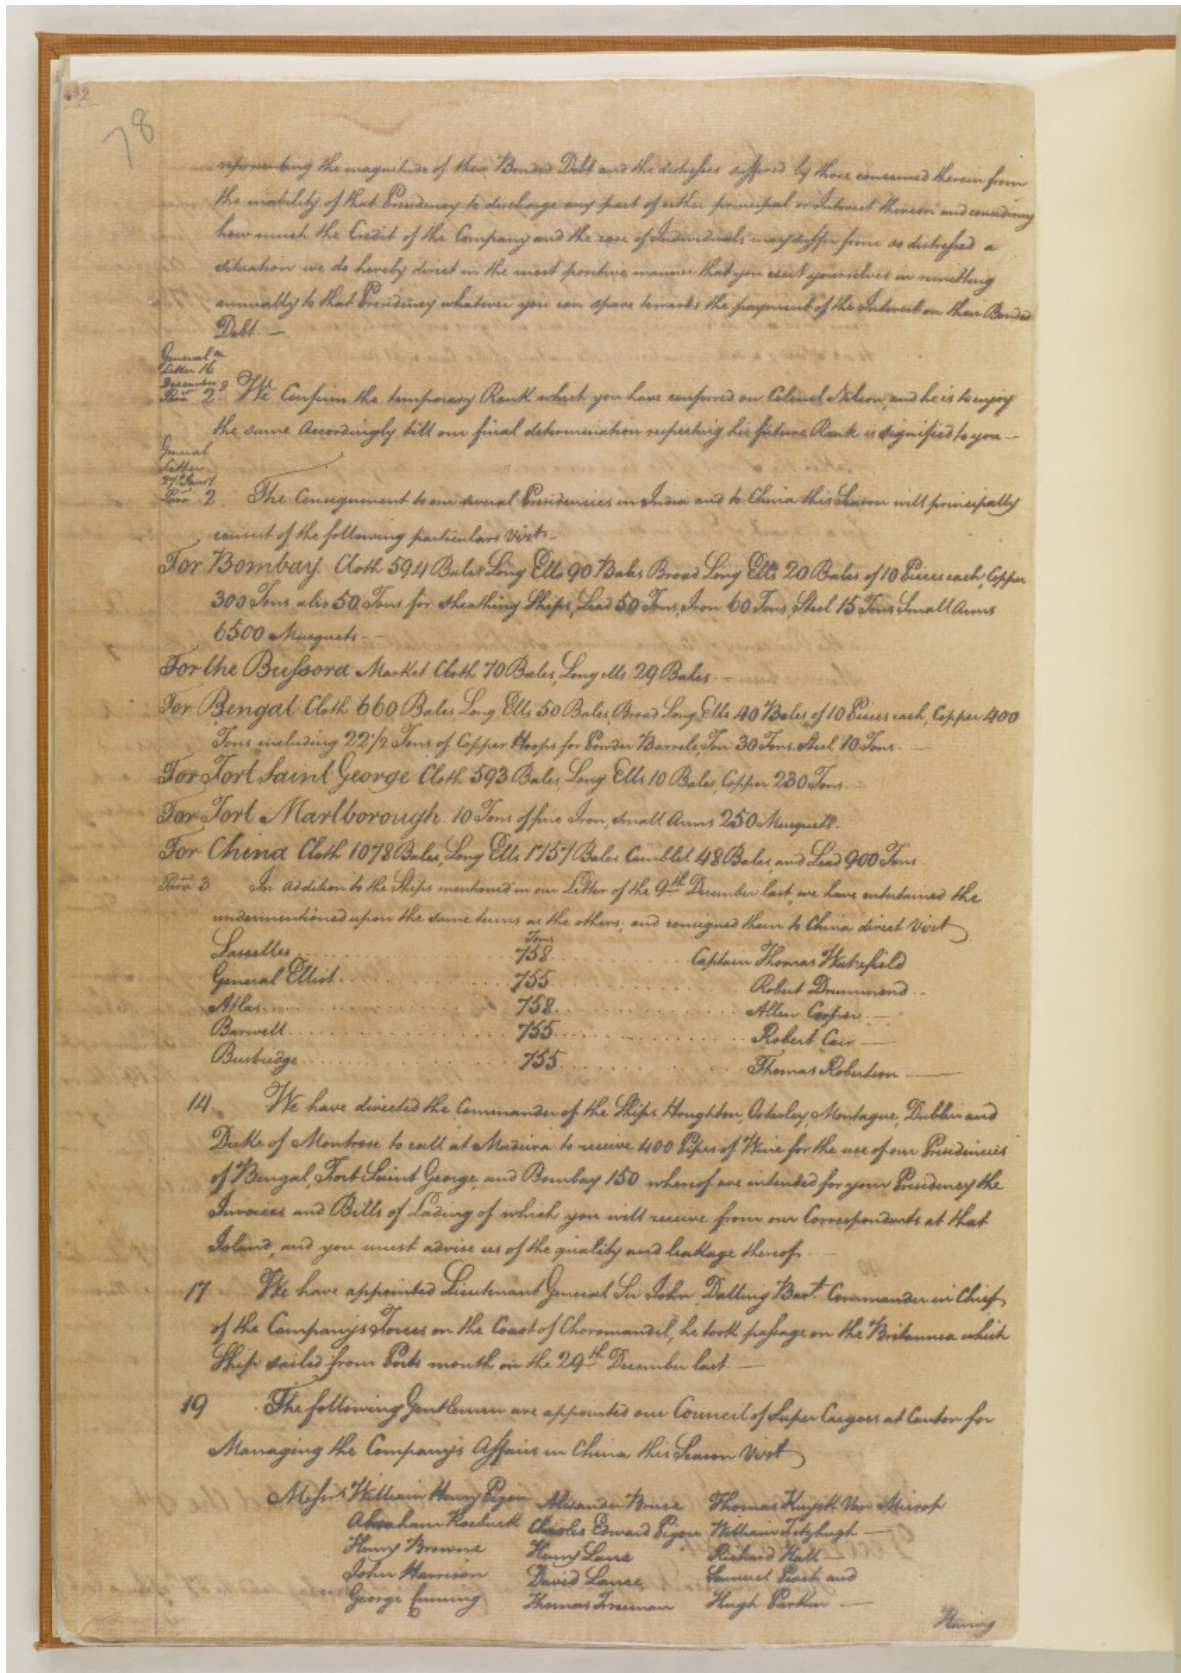 78
representing the magnitude of their Bonded Debt and the distresses suffered by those concerned therein from
the inability of that Presidency to discharge any part of either principal or Interest thereon and considering
how much the Credit of the Company and the case of Individuals may suffer from so distressed a
situation we do hereby direct in the most positive manner that you exert yourselves in remitting
annually to that Presidency whatever you can spare towards the payment of the Interest on their Bonded
Debt. —
General
Letter 16
December
Para 2. We Confirm the temporary Rank which you have conferred on Colonel Nelson, and he is to enjoy
the same Accordingly till our final determination respecting his future Rank is signified to you —
General
Letter
27th Jany
Para 2 The Consignment to our several Presidencies in India and to China this Season will principally
consist of the following particulars Vizt. —
For Bombay. Cloth 594 Bales Long Ells 90 Bales Broad Long Ells 20 Bales of 10 Pieces each, Copper
300 Tons also 50 Tons for sheathing Ships, Lead 50 Tons, Iron 60 Tons, Steel 15 Tons Small Arms
6500 Musquets. —
For the Bussora Market Cloth 70 Bales, Long ells 29 Bales. —
For Bengal Cloth 660 Bales, Long Ells 50 Bales, Broad Long Ells 40 Bales of 10 Pieces each, Copper 400
Tons including 22 1/2 Tons of Copper Hoops for Powder Barrels, 30 Tons Steel 10 Tons. —
For Fort Saint George Cloth 593 Bales, Long Ells 10 Bales, Copper 230 Tons. —
For Fort Marlborough. 10 Tons of fine Iron, small Arms 250 Musquets. —
For China Cloth 1078 Bales, Long Ells 1757 Bales Camblet 48 Bales, and Lead 900 Tons
Para 3 In addition to the Ships mentioned in our Letter of the 9th December last, we have entertained the
undermentioned upon the same terms as the others; and consigned them to China direct Vizt
Tons
Lascelles 758 Captain Thomas Wakefield
General Elliot 755 Robert Drummond
Atlas 758 Allen Cooper
Barwell 755 Robert Carr
Busbridge 755 Thomas Robertson
14 We have directed the Commander of the Ships Houghton, Osterley, Montague, Dublin and
Duke of Montrose to call at Madeira to receive 400 Pipes of Wine for the use of our Presidencies
of Bengal, Fort Saint George, and Bombay 150 whereof are intended for your Presidency the
Invoices and Bills of Lading of which you will receive from our Correspondents at that
Island, and you must advise us of the quality and leakage thereof.
17 We have appointed Lieutenant General Sir John Dalling Bart. Commander in Chief
of the Company's Forces on the Coast of Choromandel, he took passage on the Britannia which
Ship sailed from Ports mouth on the 29th December last. —
19 The following Gentlemen are appointed our Council of Super Cargoes at Canton for
Managing the Company's Affairs in China this Season Vizt
Messrs William Henry Pigou Alexander Bruce Thomas Kuyck Van Mierop
Abraham Roebuck Charles Edward Pigou William Fitzhugh —
Henry Browne Henry Lane Richard Hall
John Harrison David Lance Samuel Peach and
George Cuming Thomas Freeman Hugh Parkin —
Having